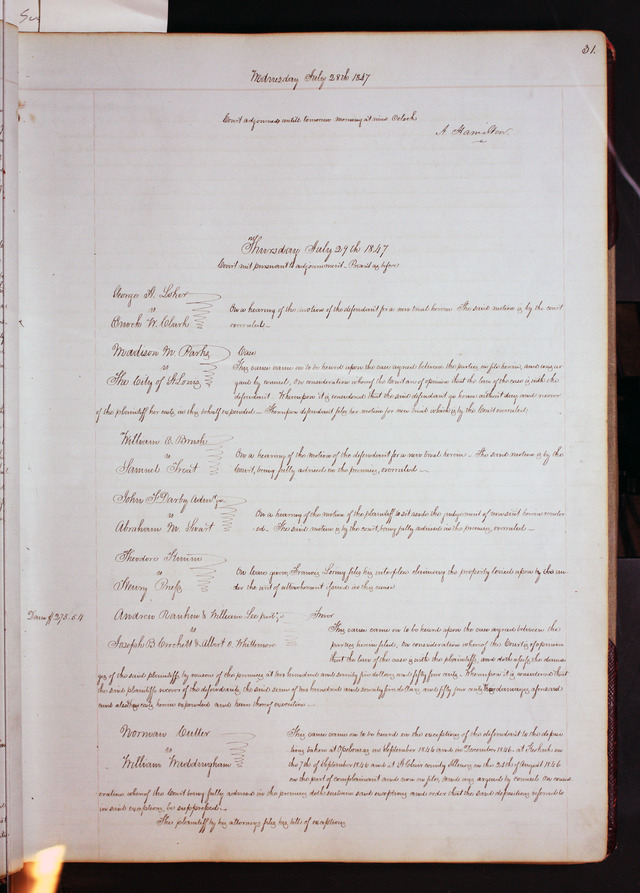 31.
Wednesday July 28th 1847
Court adjourned untill tomorrow morning at nine Oclock
A. Hamilton
Thursday July 29th 1847
Court met pursuant to adjournment. Present as before
George A.
vs
Enoch W. Clark
On a hearing of the motion of the defendant for a new trial herein. The said motion is by the court
overruled.
Madison M. Parks
vs
The City of St Louis
Case
This cause came on to be heard upon the case agreed between the parties on file herein, and was ar
gued by counsel, On consideration whereof the Court are of opinion that the law of the case is with the
defendant. Whereupon it is considered that the said defendant go hence without day and recover
of the plaintiff her costs in this behalf expended. Thereupon defendant files her motion for new trial which is by the Court overruled.
William B.
vs
Samuel
On a hearing of the motion of the defendant for a new trial herein. The said motion is by the
Court, being fully advised in the premises, overruled.
John F Darby Admr.
vs
Abraham M.
On a hearing of the motion of the plaintiff to set aside the judgement of nonsuit herein render
ed. The said motion is by the court, being fully advised in the premises, overruled.
Theodore
vs
Henry
On leave given, Francis files his interplea claiming the property levied upon by him un
der the writ of attachment issued in this cause
Dam $275.54
Andrew Rankin & William
vs
Joseph B. Crockett & Albert O. Whittemore
This cause came on to be heard upon the case agreed between the
parties herein filed, On consideration whereof the Court is of opinion
that the law of the case is with the plaintiffs, and doth assess the dama
ges of the said plaintiffs by reason of the premises at two hundred and seventy five dollars and fifty four cents. Whereupon it is considered that
the said plaintiffs recover of the defendants, the said sum of two hundred and seventy five dollars and fifty four cents their damages aforesaid
and also their costs herein expended and have thereof execution.
Norman Cutler
vs
William
This cause came on to be heard on the exceptions of the defendant to the depos
itions taken at Opelousas in September 1846 and in December 1846. at on
the 7th of September 1846 and at St Clair county Illinois on the 28th of August 1846
on the part of complainant and now on file, and was argued by counsel. On consid
eration whereof the Court being fully advised in the premises doth sustain said exceptions and order that the said depositions referred to
in said exceptions be suppressed.
The plaintiff by his attorney files his bill of exceptions